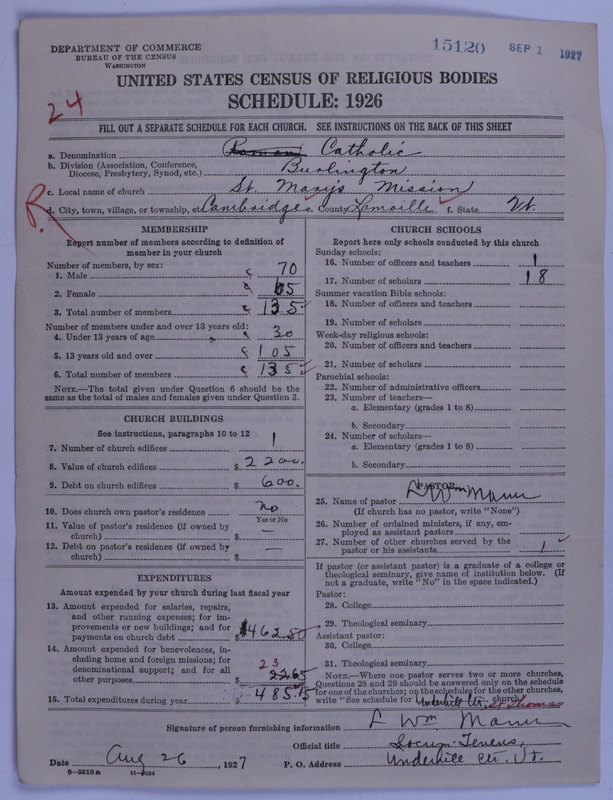 DEPARTMENT OF COMMERCE
BUREAU OF THE CENSUS
WASHINGTON
15120 SEP 1 1927
UNITED STATES CENSUS OF RELIGIOUS BODIES
24
SCHEDULE: 1926
FILL OUT A SEPARATE SCHEDULE FOR EACH CHURCH. SEE INSTRUCTIONS ON THE BACK OF THIS SHEET
a. Denomination Roman Catholic
b. Division (Association, Conference, Diocese, Presbytery, Synod, etc.) Burlington
c. Local name of church St. Mary's Mission
R.
d. City, town, village, or township, etc. Cambridge e. County Lamoille f. State Vt.
MEMBERSHIP
Report number of members according to definition of
member in your church
Number of members, by sex:
1. Male 70
2. Female 65
3. Total number of members 135
Number of members under and over 13 years old:
4. Under 13 years of age 30
5. 13 years old and over 105
6. Total number of members 135
NOTE.—The total given under Question 6 should be the
same as the total of males and females given under Question 3.
CHURCH BUILDINGS
See instructions, paragraphs 10 to 12
7. Number of church edifices 1
8. Value of church edifices $ 2200.
9. Debt on church edifices $ 600.
10. Does church own pastor's residence No
Yes or No
11. Value of pastor's residence (if owned by
church) $ —
12. Debt on pastor's residence (if owned by
church) $ —
EXPENDITURES
Amount expended by your church during last fiscal year
13. Amount expended for salaries, repairs,
and other running expenses; for im-
provements or new buildings; and for
payments on church debt $ 462.50
14. Amount expended for benevolences, in-
cluding home and foreign missions; for
denominational support; and for all
23
other purposes $ 22.65
15. Total expenditures during year $ 485.15
CHURCH SCHOOLS
Report here only schools conducted by this church
Sunday schools:
16. Number of officers and teachers 1
17. Number of scholars 18
Summer vacation Bible schools:
18. Number of officers and teachers
19. Number of scholars
Week-day religious schools:
20. Number of officers and teachers
21. Number of scholars
Parochial schools:
22. Number of administrative officers
23. Number of teachers—
a. Elementary (grades 1 to 8)
b. Secondary
24. Number of scholars—
a. Elementary (grades 1 to 8)
b. Secondary
PASTOR
25. Name of pastor L Wm Mann
(If church has no pastor, write "None")
26. Number of ordained ministers, if any, em-
ployed as assistant pastors
27. Number of other churches served by the
pastor or his assistants 1
If pastor (or assistant pastor) is a graduate of a college or
theological seminary, give name of institution below. (If
not a graduate, write "No" in the space indicated.)
Pastor:
28. College
29. Theological seminary
Assistant pastor:
30. College
31. Theological seminary
NOTE.—Where one pastor serves two or more churches,
Questions 28 and 29 should be answered only on the schedule
for one of the churches; on the schedules for the other churches,
write "See schedule for Underhill Ctr, St Thomas church."
Signature of person furnishing information L Wm Mann
Official title Locum-Tenens,
Date Aug 26, 1927 P. O. Address Underhill Ctr. Vt.
8—5518a 11—9184